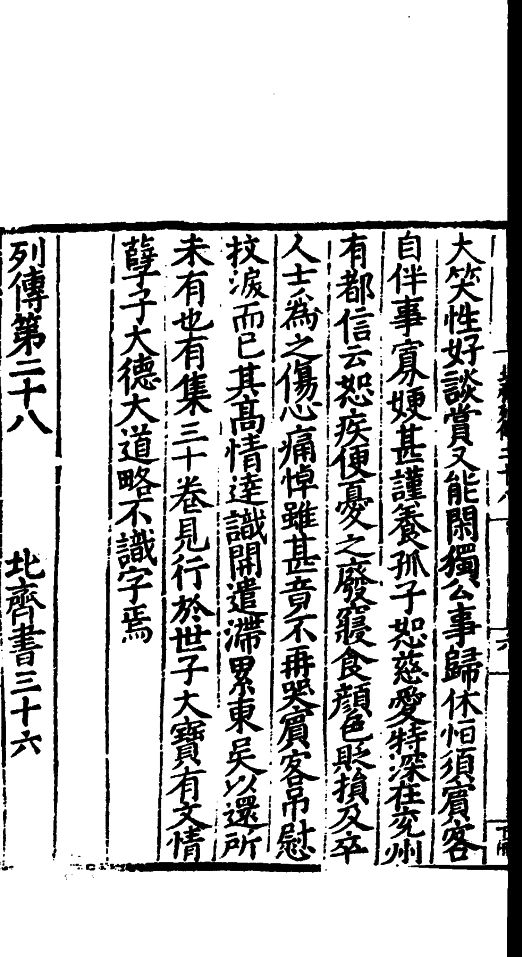 大笑性好談賞又能閑獨公事歸休恒須賓客
自伴事寡㛐甚謹養孤子恕慈愛特深在兖州
有都信云恕疾便憂之廢寢食顔色貶損及卒
人士爲之傷心痛悼雖甚竟不再哭賓客吊慰
抆淚而已其高情達識開遣滯累東吴以還所
未有也有集三十卷見行於世子大寶有文情
孽子大德大道略不識字焉
列傳第二十八 北齊書三十六